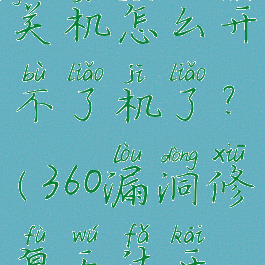 关机怎么开
bù liǎo jī liǎo
不了机了？
lòu dòng xiū
（360漏洞修
fù wú fǎ kāi